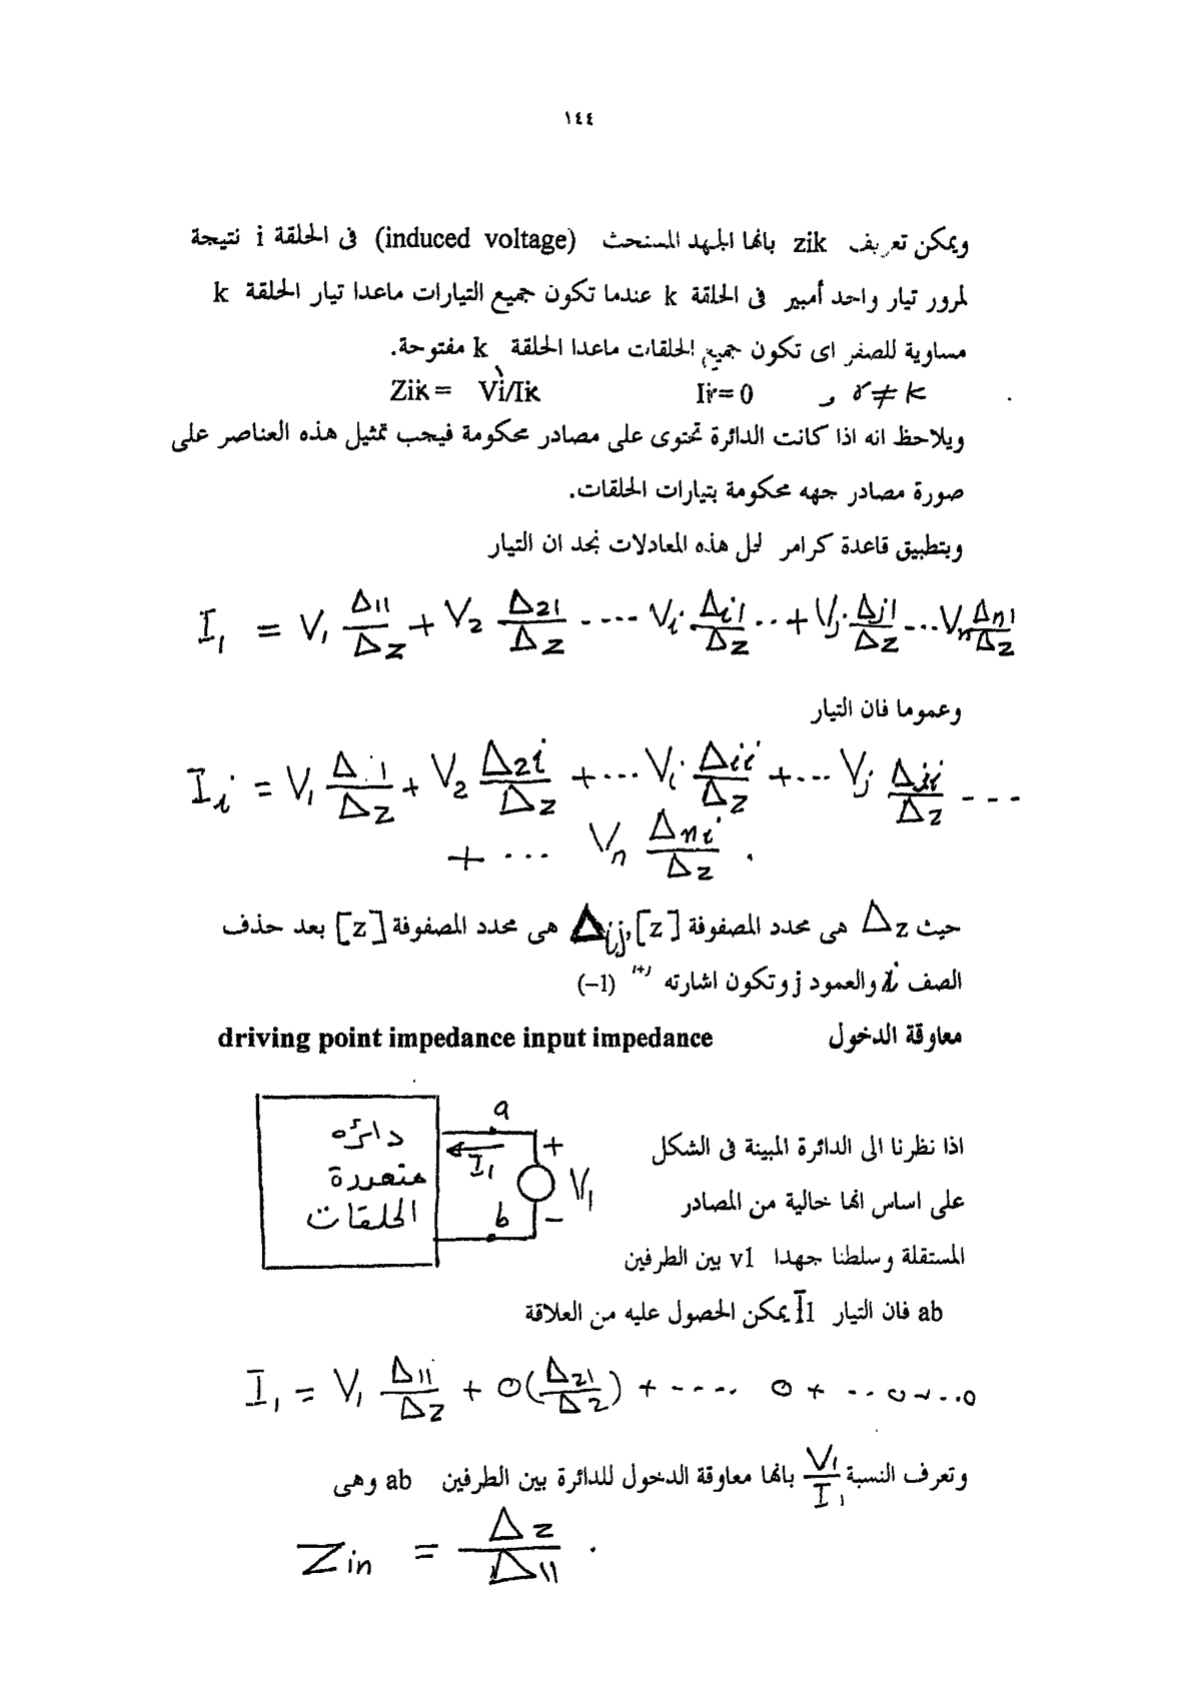 ١٤٤
ويمكن تعريف zik بانها الجهد المستحث (induced voltage) فى الحلقة i نتيجة
لمرور تيار واحد أمبير فى الحلقة k عندما تكون جميع التيارات ماعدا تيار الحلقة k
مساوية للصفر اى تكون جميع الحلقات ماعدا الحلقة k مفتوحة.
Zik = Vi/Ik Ir= 0 و r ≠ k
ويلاحظ انه اذا كانت الدائرة تحتوى على مصادر محكومة فيجب تمثيل هذه العناصر على
صورة مصادر جهه محكومة بتيارات الحلقات.
وبتطبيق قاعدة كرامر لحل هذه المعادلات نجد ان التيار
I₁ = V₁ Δ11/Δz + V₂ Δ21/Δz ---- Vi Δi1/Δz ..+ Vj Δj1/Δz --- Vn Δn1/Δz
وعموما فان التيار
Ii = V₁ Δ i1/Δz + V₂ Δ2i/Δz +... Vi Δii/Δz +... Vj Δji/Δz ---
+ ... Vn Δni/Δz .
حيث Δz هى محدد المصفوفة [z], Δij هى محدد المصفوفة [z] بعد حذف
الصف i والعمود j وتكون اشارته (–1) i+j
معاوقة الدخول driving point impedance input impedance
دائره
متعددة
الحلقات
a
+
I₁
V₁
b
–
اذا نظرنا الى الدائرة المبينة فى الشكل
على اساس انها خالية من المصادر
المستقلة وسلطنا جهدا v1 بين الطرفين
ab فان التيار I1 يمكن الحصول عليه من العلاقة
I₁ = V₁ Δ11/Δz + 0(Δ21/Δz) + ---- 0 + -- 0 -...0
وتعرف النسبة V₁/I₁ بانها معاوقة الدخول للدائرة بين الطرفين ab وهى
Zin = Δz/Δ11 .